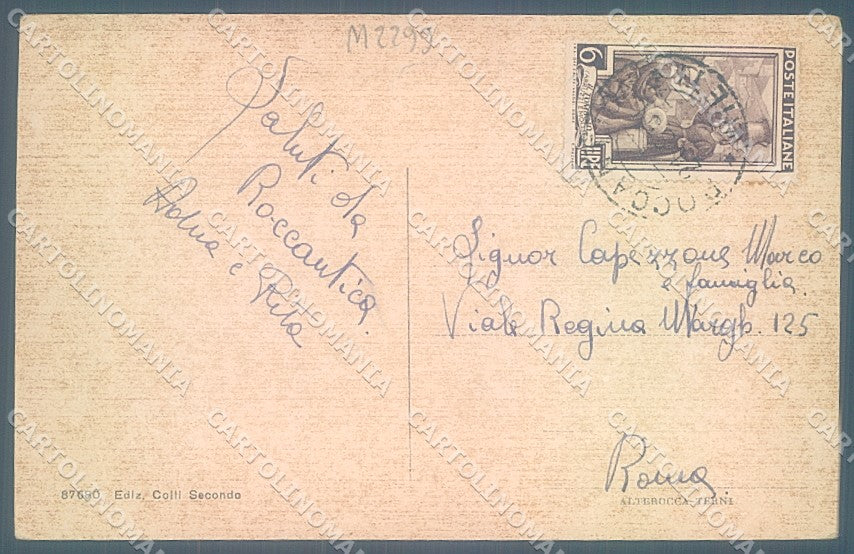 M2299
Saluti da
Roccantica
Adua e Rita
POSTE ITALIANE
6
LIRE
Signor Capezzone Marco
e famiglia
Viale Regina Margh. 125
Roma
87690 Ediz. Colli Secondo
ALTEROCCA-TERNI
CARTOLINOMANIA